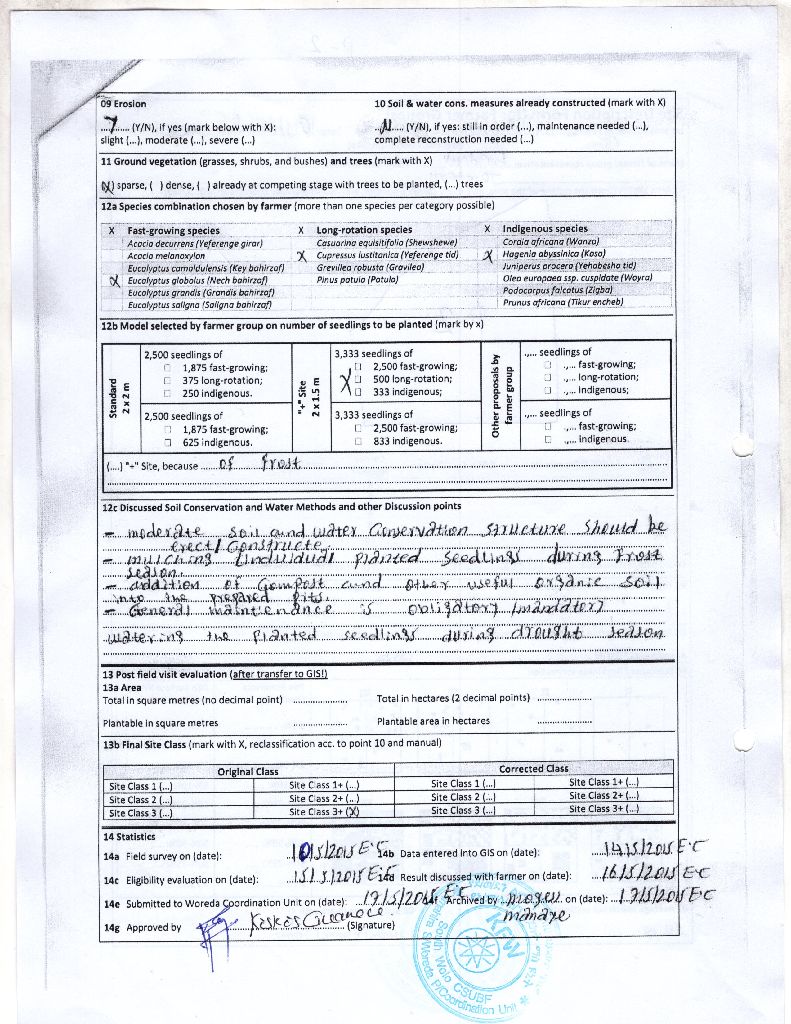 09 Erosion
10 Soil & water cons. measures already constructed (mark with X)
....Y..... (Y/N), if yes (mark below with X):
..N.... (Y/N), if yes: still in order (...), maintenance needed (...),
slight (...), moderate (...), severe (...)
complete reconstruction needed (...)
11 Ground vegetation (grasses, shrubs, and bushes) and trees (mark with X)
(X) sparse, ( ) dense, ( ) already at competing stage with trees to be planted, (...) trees
12a Species combination chosen by farmer (more than one species per category possible)
X Fast-growing species X Long-rotation species X Indigenous species
Acacia decurrens (Yeferenge girar) Casuarina equisitifolia (Shewshewe) Cordia africana (Wanza)
Acacia melanoxylon X Cupressus lustitanica (Yeferenge tid) X Hagenia abyssinica (Koso)
Eucalyptus camaldulensis (Key bahirzaf) Grevilea robusta (Gravilea) Juniperus procera (Yehabesha tid)
X Eucalyptus globolus (Nech bahirzaf) Pinus patula (Patula) Olea europaea ssp. cuspidate (Woyra)
Eucalyptus grandis (Grandis bahirzaf) Podocarpus falcatus (Zigba)
Eucalyptus saligna (Saligna bahirzaf) Prunus africana (Tikur encheb)
12b Model selected by farmer group on number of seedlings to be planted (mark by x)
Standard
2 x 2 m
2,500 seedlings of
☐ 1,875 fast-growing;
☐ 375 long-rotation;
☐ 250 indigenous.
2,500 seedlings of
☐ 1,875 fast-growing;
☐ 625 indigenous.
"+" Site
2 x 1.5 m
3,333 seedlings of
☐ 2,500 fast-growing;
X ☐ 500 long-rotation;
☐ 333 indigenous;
3,333 seedlings of
☐ 2,500 fast-growing;
☐ 833 indigenous.
Other proposals by
farmer group
.,... seedlings of
☐ .,... fast-growing;
☐ .,... long-rotation;
☐ .,... indigenous;
.,... seedlings of
☐ .,... fast-growing;
☐ .,... indigenous.
(....) "+" Site, because ...... of frost
12c Discussed Soil Conservation and Water Methods and other Discussion points
- moderate soil and water Conservation structure should be
erect/ Constructe
- mulching individual planted seedlings during frost
season.
- addition of Compost and other useful organic soil
into the prepared pits.
- General maintenance is obligatory (mandator)
watering the planted seedlings during drought season
13 Post field visit evaluation (after transfer to GIS!)
13a Area
Total in square metres (no decimal point) .................. Total in hectares (2 decimal points) ..................
Plantable in square metres .................. Plantable area in hectares ..................
13b Final Site Class (mark with X, reclassification acc. to point 10 and manual)
Original Class Corrected Class
Site Class 1 (...) Site Class 1+ (...) Site Class 1 (...) Site Class 1+ (...)
Site Class 2 (...) Site Class 2+ (...) Site Class 2 (...) Site Class 2+ (...)
Site Class 3 (...) Site Class 3+ (X) Site Class 3 (...) Site Class 3+ (...)
14 Statistics
14a Field survey on (date): 10/5/2015 E.C 14b Data entered into GIS on (date): 14/5/2015 E.C
14c Eligibility evaluation on (date): 15/5/2015 E.C 14d Result discussed with farmer on (date): 16/5/2015 E.C
14e Submitted to Woreda Coordination Unit on (date): 17/5/2015 E.C 14f Archived by on (date): 17/5/2015 E.C
14g Approved by (Signature)
KFW
South Wolo CSUBF
Woreda P/Coordination Unit